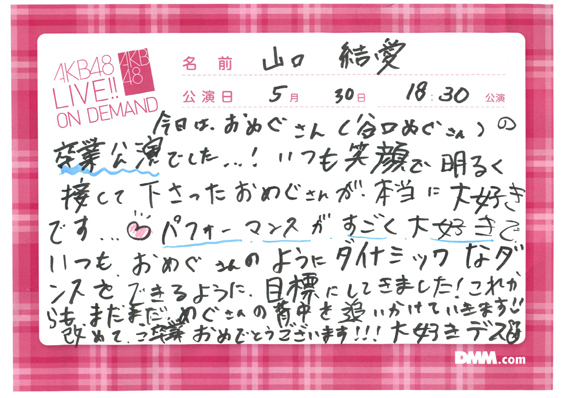 AKB48
LIVE!!
ON DEMAND
AKB
48
名前 山口 結愛
公演日 5月 30日 18:30 公演
今日は、おめぐさん(谷口めぐさん)の
卒業公演でした...!いつも笑顔で明るく
接して下さったおめぐさんが、本当に大好き
です...♡パフォーマンスがすごく大好きで
いつも、おめぐさんのようにダイナミックなダ
ンスをできるように、目標にしてきました!これか
らも、まだまだめぐさんの背中を追いかけていきます!!
改めて、ご卒業おめでとうございます!!!大好きデス
DMM.com